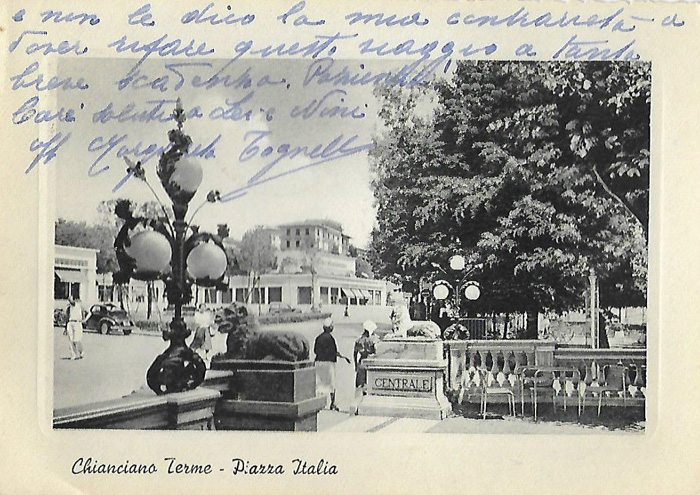 e non le dico la mia contrarietà a
dover rifare questo viaggio a tanto
breve scadenza. Pazienza!
Cari saluti a Lei e Nini
aff Margherita Tognelli
CENTRALE
Chianciano Terme - Piazza Italia